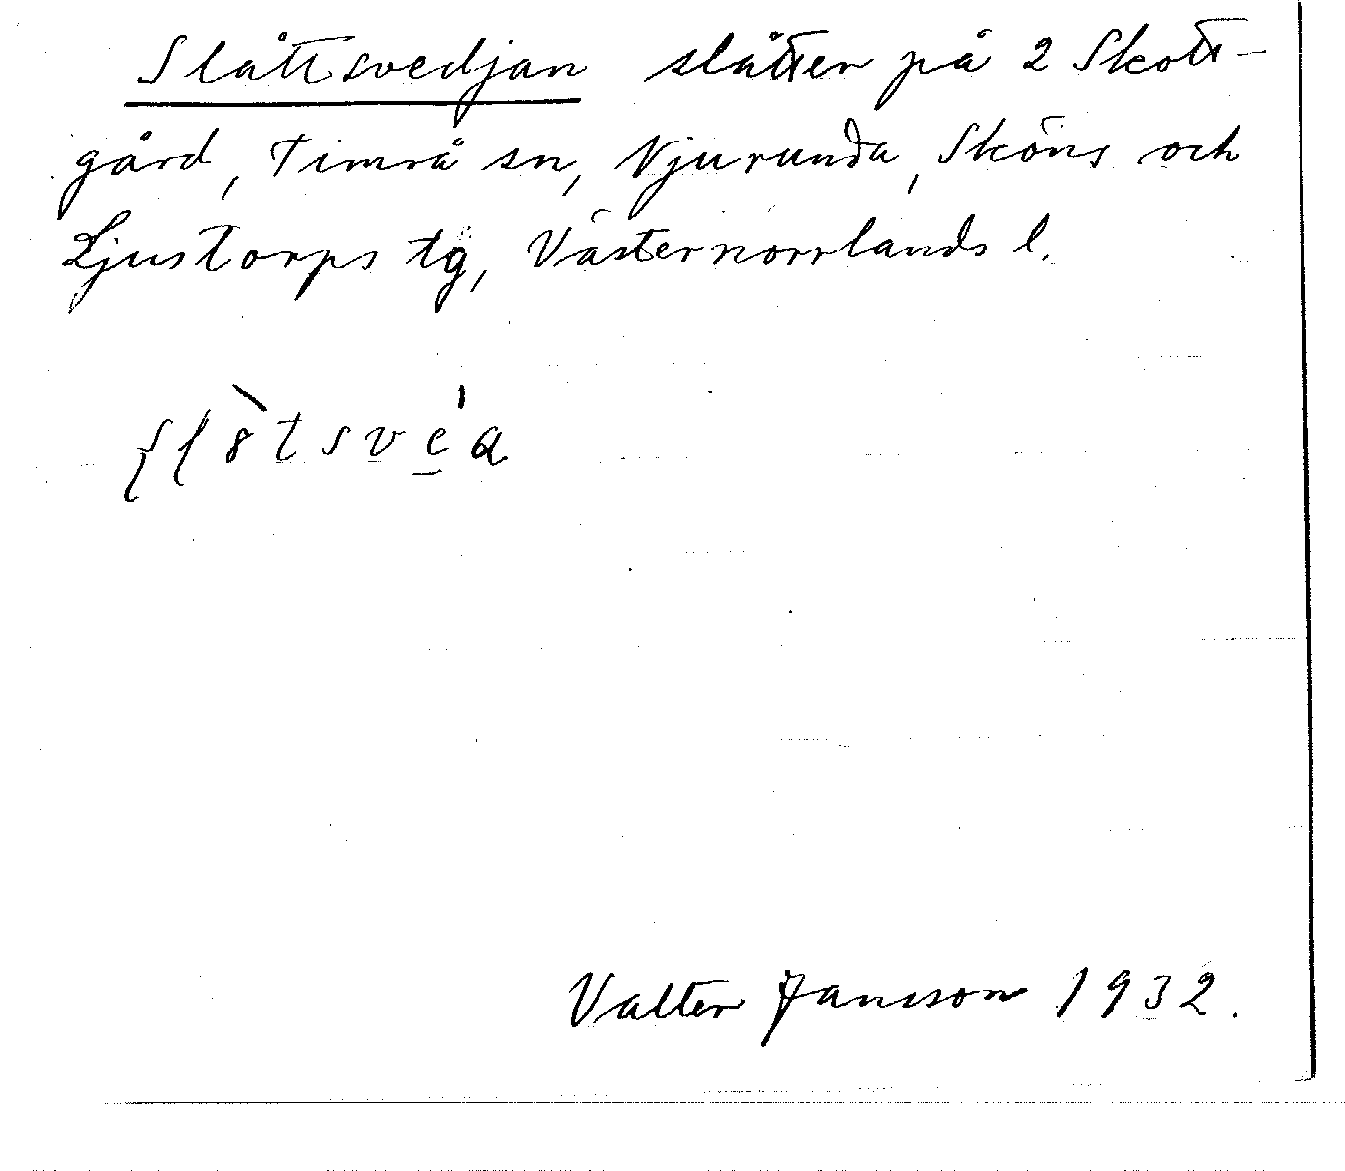 Slåttsvedjan slåtter på 2 Skott-
gård, Timrå sn, Njurunda, Sköns och
Ljustorps tg, Västernorrlands l.
Valter Jansson 1932.